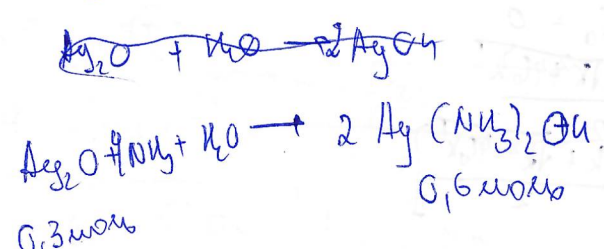 Ag₂O + H₂O → 2 AgOH
Ag₂O + 4NH₃ + H₂O → 2 Ag(NH₃)₂OH
0,3 моль 0,6 моль